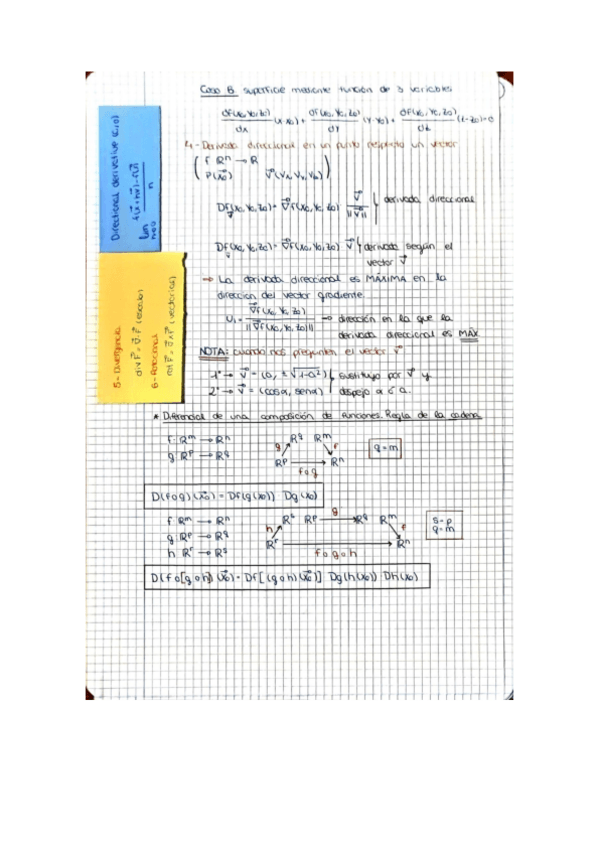 Caso B: superficie mediante función de 3 variables
df(x0,y0,z0)/dx (x-x0) + df(x0,y0,z0)/dy (y-y0) + df(x0,y0,z0)/dz (z-z0)=0
4-Derivada direccional en un punto respecto un vector
f: Rⁿ → R
P(x⃗0) v⃗(vx, vy, vz)
Df(x0,y0,z0) = ∇⃗f(x0,y0,z0) · v⃗/||v⃗|| } derivada direccional
Df(x0,y0,z0) = ∇⃗f(x0,y0,z0) · v⃗ } derivada según el
vector v⃗
→ La derivada direccional es MÁXIMA en la
direccion del vector gradiente.
U1 = ∇⃗f(x0,y0,z0)/||∇⃗f(x0,y0,z0)|| → dirección en la que la
derivada direccional es MÁX
NOTA: cuando nos pregunten el vector v⃗
1º → v⃗ = (a, ±√1-a²) } sustituyo por v⃗ y
2º → v⃗ = (cosα, senα) } despejo a ó α.
* Diferencial de una composición de funciones. Regla de la cadena
f: Rᵐ → Rⁿ
g: Rᵖ → R^q
g R^q Rᵐ f
Rᵖ → Rⁿ
f∘g
q=m
D(f∘g)(x⃗0) = Df(g(x0)) · Dg(x0)
f: Rᵐ → Rⁿ
g: Rᵖ → R^q
h: Rʳ → Rˢ
h Rˢ Rᵖ g R^q Rᵐ f
Rʳ → Rⁿ
f∘g∘h
s=p
q=m
D(f∘[g∘h])(x⃗0) = Df[(g∘h)(x⃗0)] · Dg(h(x0)) · Dh(x0)
Directional derivative
lim n→0
5- Divergencia
div F⃗ = ∇⃗·F⃗ (escalar)
6- Rotacional
rot F⃗ = ∇⃗∧F⃗ (vectorial)